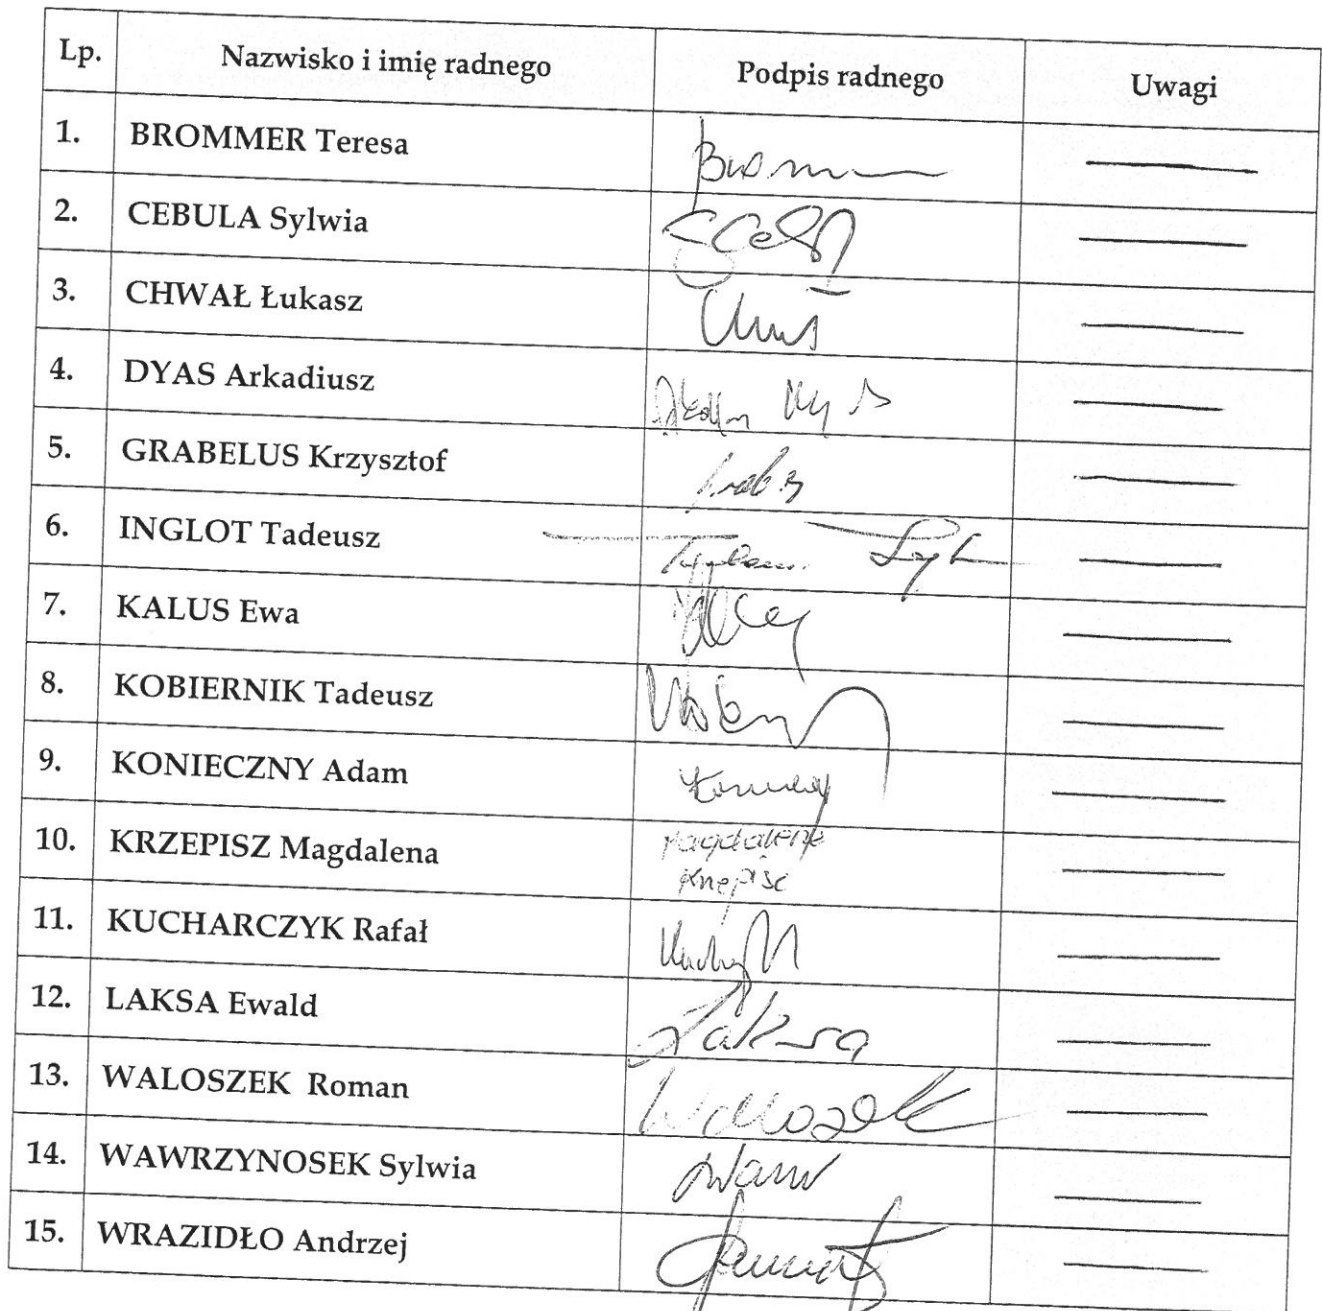 Lp. Nazwisko i imię radnego Podpis radnego Uwagi
1. BROMMER Teresa
2. CEBULA Sylwia
3. CHWAŁ Łukasz
4. DYAS Arkadiusz
5. GRABELUS Krzysztof
6. INGLOT Tadeusz
7. KALUS Ewa
8. KOBIERNIK Tadeusz
9. KONIECZNY Adam
10. KRZEPISZ Magdalena Magdalena
11. KUCHARCZYK Rafał
12. LAKSA Ewald Laksa
13. WALOSZEK Roman Waloszek
14. WAWRZYNOSEK Sylwia
15. WRAZIDŁO Andrzej